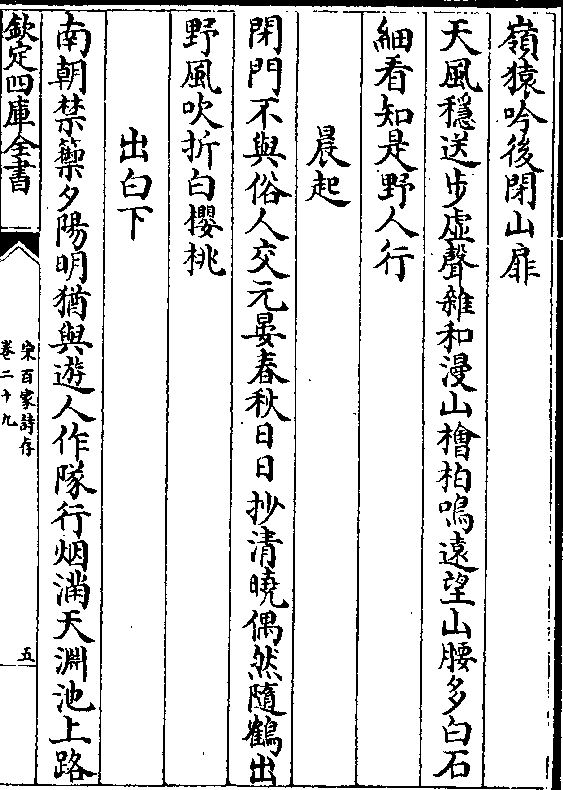 嶺猿吟後閉山扉
天風穩送步虛聲雜和漫山檜柏鳴遠望山腰多白石
細看知是野人行
晨起
閉門不與俗人交元晏春秋日日抄清曉偶然隨鶴出
野風吹折白櫻桃
出白下
南朝禁籞夕陽明猶與遊人作隊行烟滿天淵池上路
欽定四庫全書
宋百家詩存
卷二十九
五